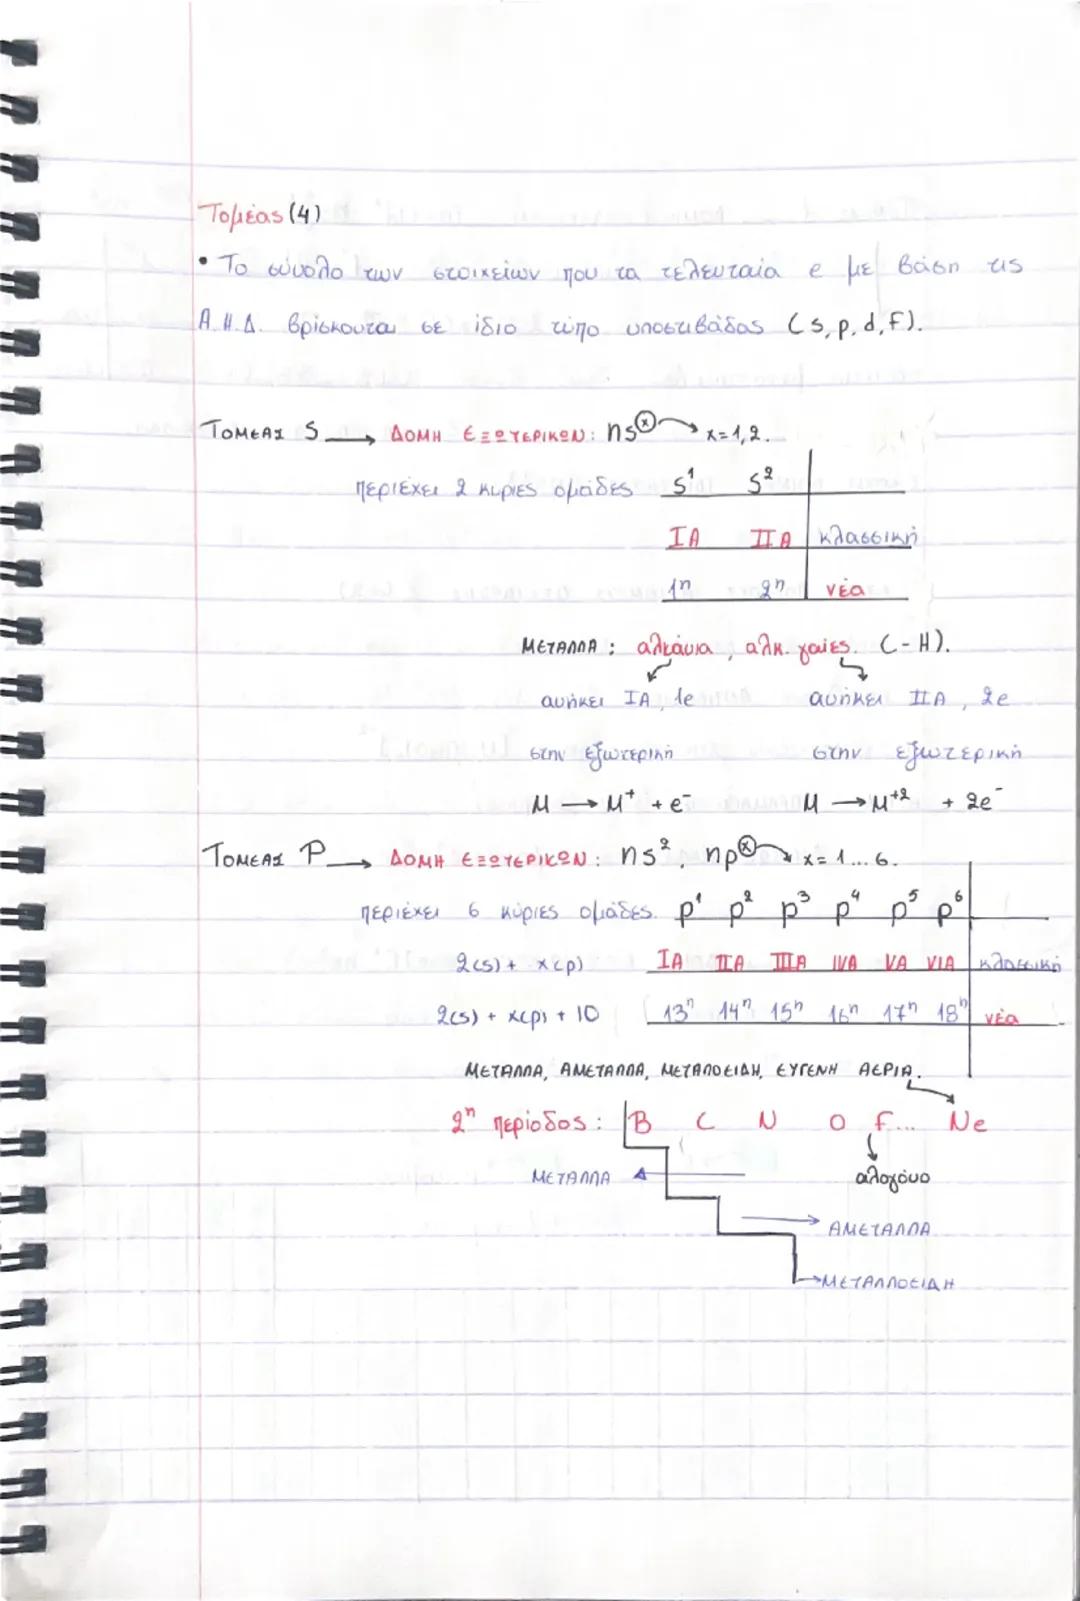 Τομέας (4)
• Το σύνολο των στοιχείων που τα τελευταία e με βάση τις
Α.Η.Δ. βρίσκονται σε ίδιο τύπο υποστιβάδας (s, p, d, f).
ΤΟΜΕΑΣ S → ΔΟΜΗ ΕΞΩΤΕΡΙΚΩΝ: ns^x → x=1,2.
περιέχει 2 κύριες ομάδες s¹ s²
IA IIA κλασσική
1η 2η νέα
ΜΕΤΑΛΛΑ: αλκάλια, αλκ. γαίες. (-H).
ανήκει IA, 1e ανήκει IIA, 2e
στην εξωτερική στην εξωτερική
M → M⁺ + e⁻ M → M⁺² + 2e⁻
ΤΟΜΕΑΣ P → ΔΟΜΗ ΕΞΩΤΕΡΙΚΩΝ: ns², np^x → x=1...6.
περιέχει 6 κύριες ομάδες. p¹ p² p³ p⁴ p⁵ p⁶
2(s) + x(p) IA IIA IIIA IVA VA VIA κλασσική
2(s) + x(p) + 10 13η 14η 15η 16η 17η 18η νέα
ΜΕΤΑΛΛΑ, ΑΜΕΤΑΛΛΑ, ΜΕΤΑΛΟΕΙΔΗ, ΕΥΓΕΝΗ ΑΕΡΙΑ.
2η περίοδος: B C N O F... Ne
ΜΕΤΑΛΛΑ ← αλογόνο
→ ΑΜΕΤΑΛΛΑ
→ ΜΕΤΑΛΛΟΕΙΔΗ